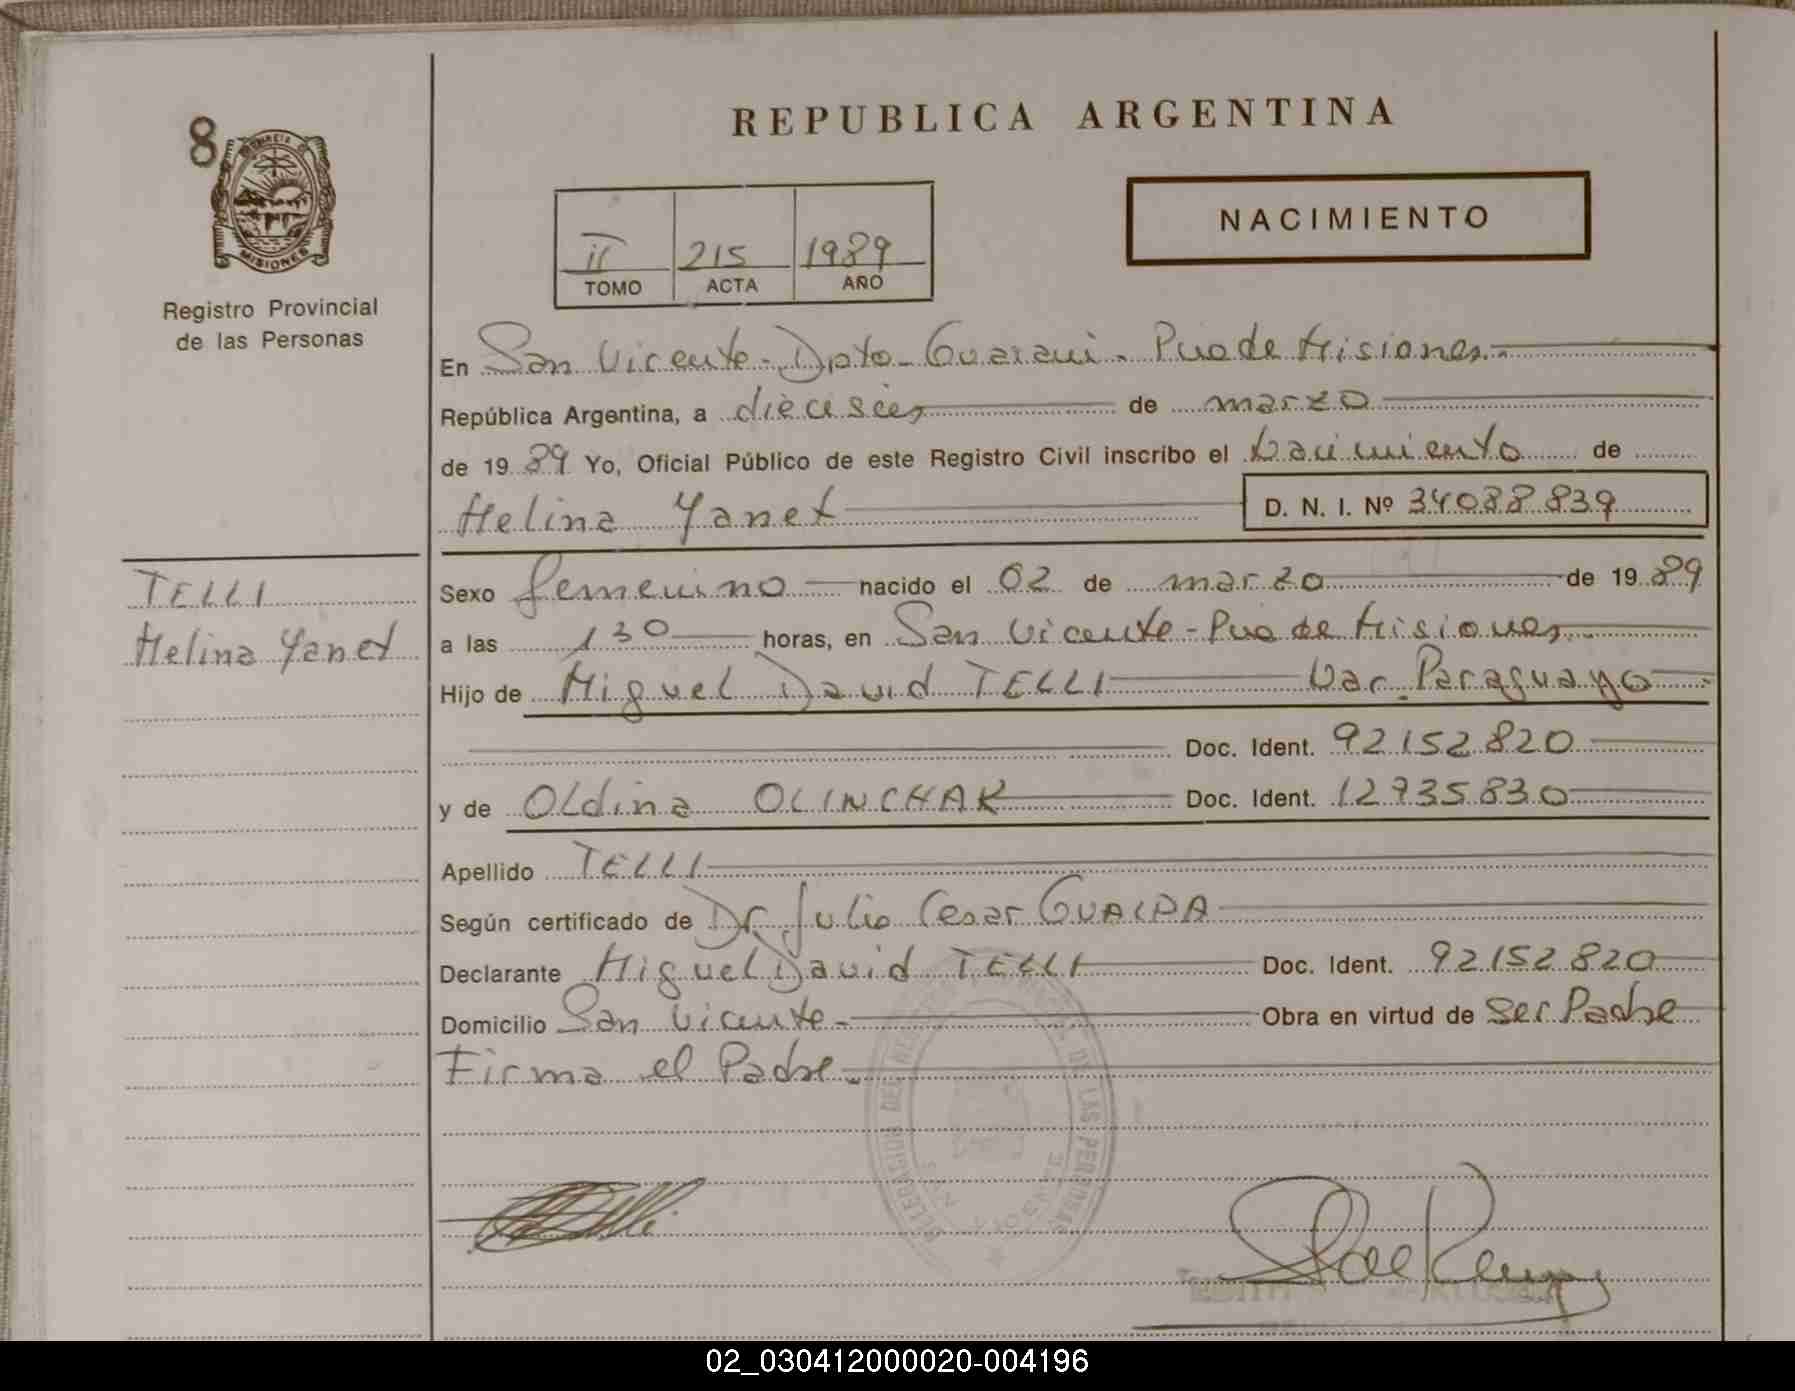 REPUBLICA ARGENTINA
8
MISIONES
Registro Provincial
de las Personas
NACIMIENTO
II 215 1989
TOMO ACTA AÑO
En San Vicente - Dpto - Guarani - Pvia de Misiones
República Argentina, a dieciseis de marzo
de 1989 Yo, Oficial Público de este Registro Civil inscribo el Nacimiento de
Helina Yanet D. N. I. Nº 34088839
TELLI
Helina Yanet
Sexo femenino nacido el 02 de marzo de 1989
a las 130 horas, en San Vicente - Pvia de Misiones
Hijo de Miguel David TELLI Nac. Paraguayo
Doc. Ident. 92152820
y de OLdina OLINCHAK Doc. Ident. 12735830
Apellido TELLI
Según certificado de Dr. Julio Cesar GUALPA
Declarante Miguel David TELLI Doc. Ident. 92152820
Domicilio San Vicente - Obra en virtud de Ser Padre
Firma el Padre
DE LAS PERSONAS
02_030412000020-004196